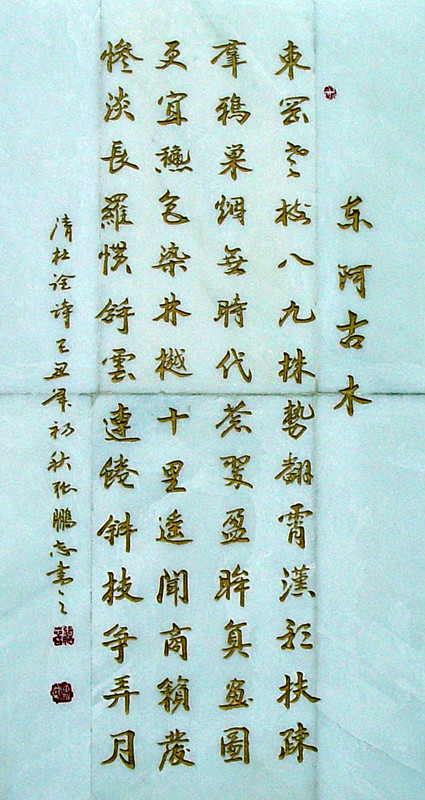 东阿古木
東岡老樹八九株勢翻霄漢影扶疎
羣鴉巢烟無時代蒼翠盈眸真畫圖
更宜穠色染林樾十里遙聞商籟發
慘淡長羅舒雲連蜷斜枝爭弄月
清杜詮詩己丑年初秋张鵬志書之